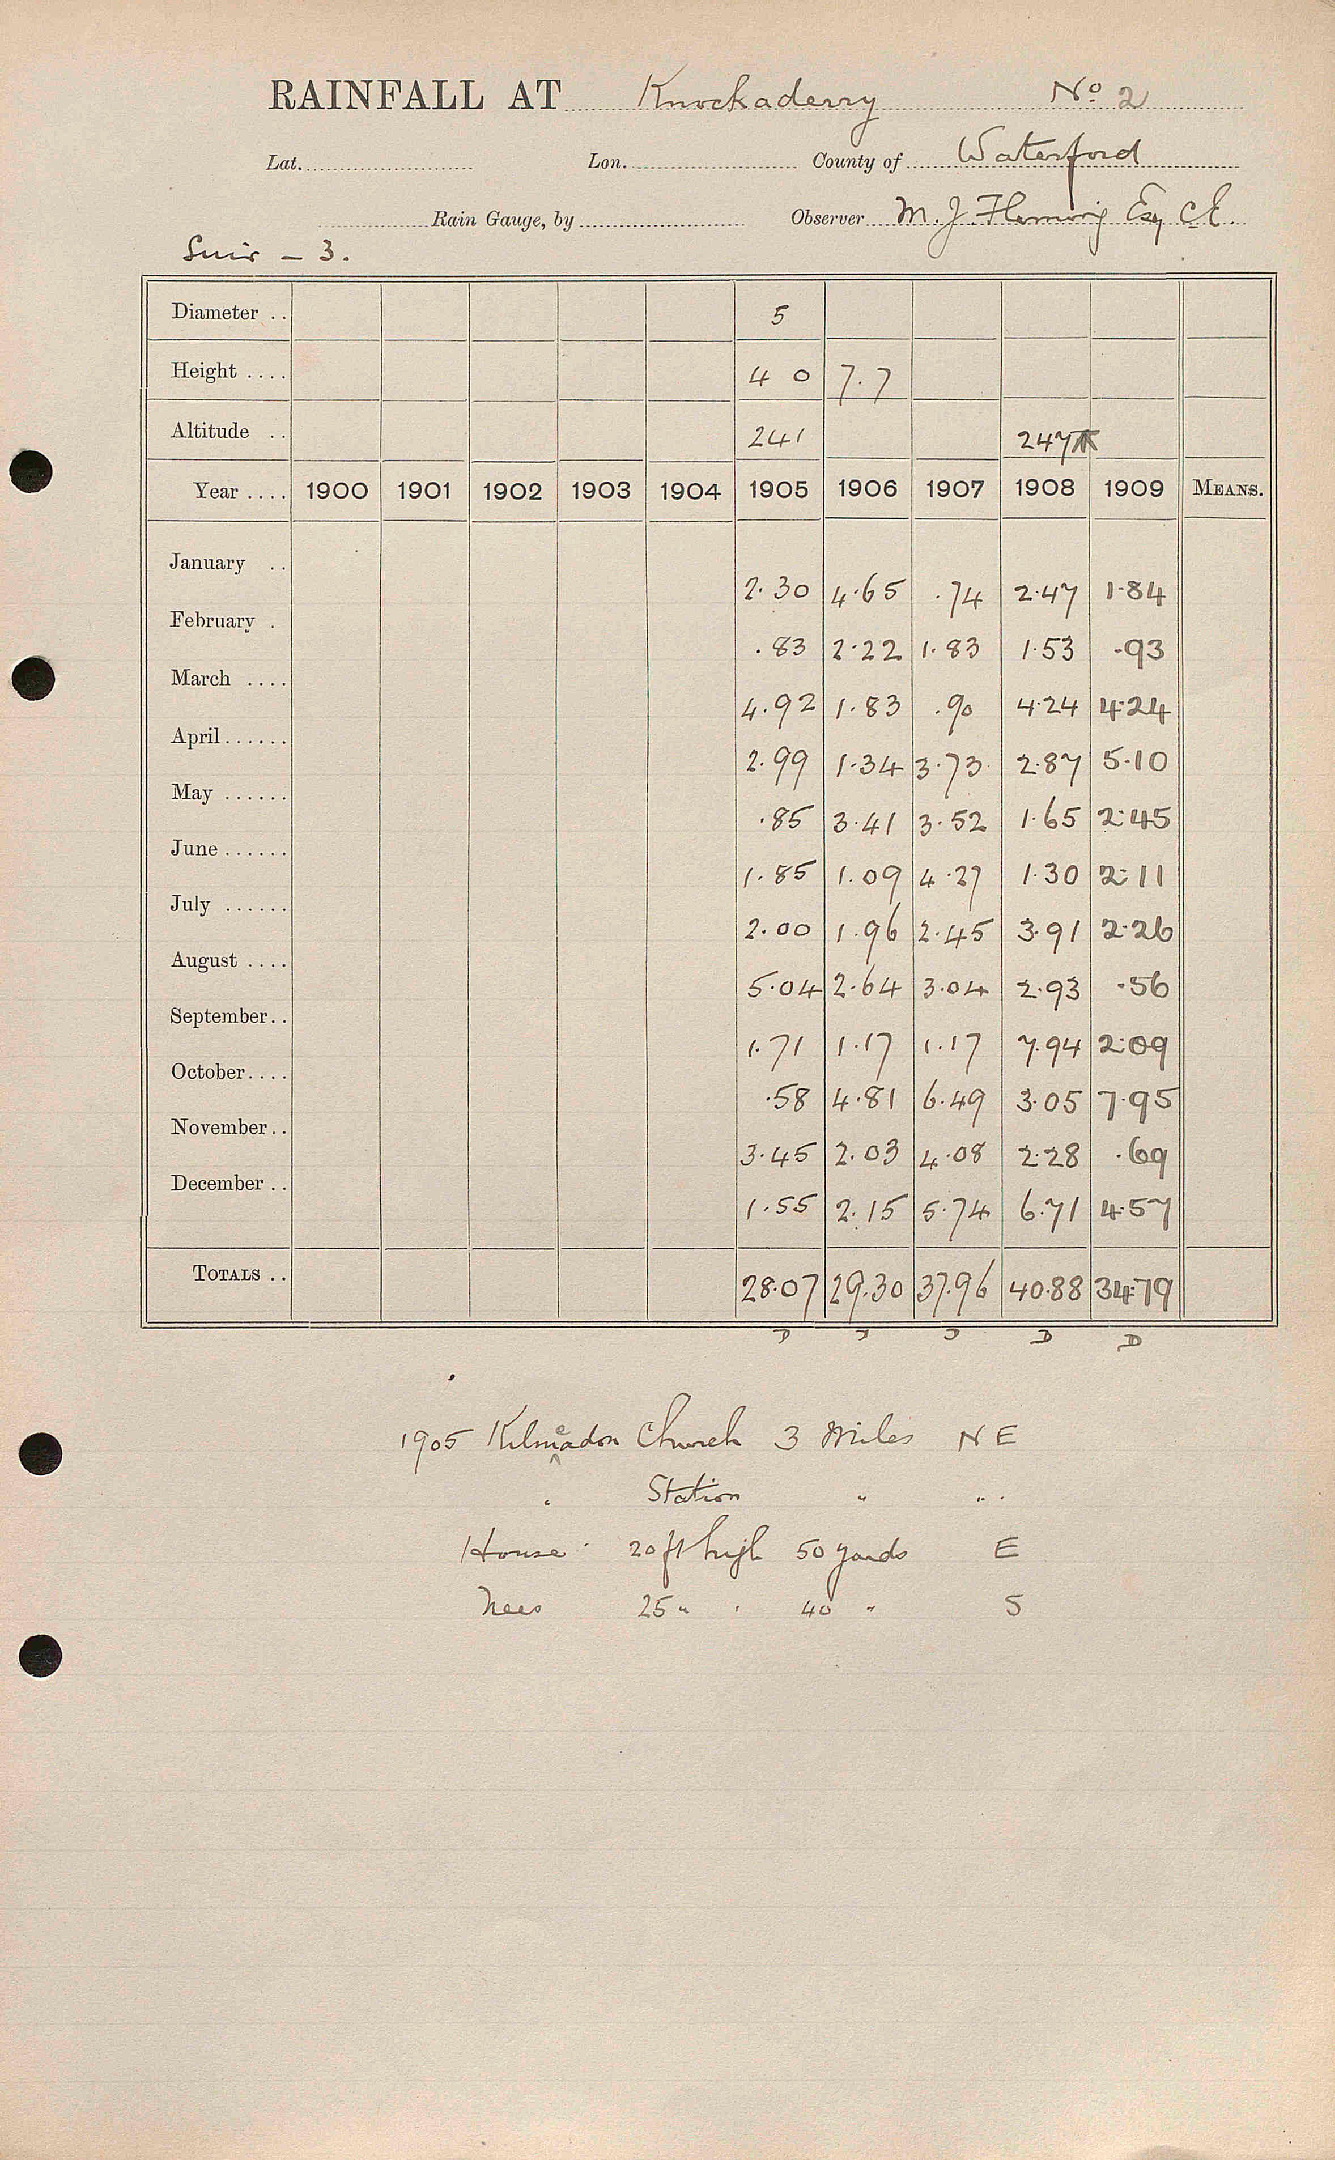 RAINFALL AT Knockaderry No 2
Lat. Lon. County of Waterford
Rain Gauge, by Observer M. J. Fleming Esq C.E.
Suir - 3.
Diameter .. 5
Height .... 4 0 7.7
Altitude .. 241 247
Year .... 1900 1901 1902 1903 1904 1905 1906 1907 1908 1909 MEANS.
January .. 2.30 4.65 .74 2.47 1.84
February . .83 2.22 1.83 1.53 .93
March .... 4.92 1.83 .90 4.24 4.24
April ...... 2.99 1.34 3.73 2.87 5.10
May ...... .85 3.41 3.52 1.65 2.45
June ...... 1.85 1.09 4.27 1.30 2.11
July ...... 2.00 1.96 2.45 3.91 2.26
August .... 5.04 2.64 3.04 2.93 .56
September.. 1.71 1.17 1.17 7.94 2.09
October.... .58 4.81 6.49 3.05 7.95
November.. 3.45 2.03 4.08 2.28 .69
December .. 1.55 2.15 5.74 6.71 4.57
TOTALS .. 28.07 29.30 37.96 40.88 34.79
D D D D D
1905 Kilmeadon Church 3 Miles N E
" Station " " "
House 20 ft high 50 yards E
Trees 25 " " 40 " S